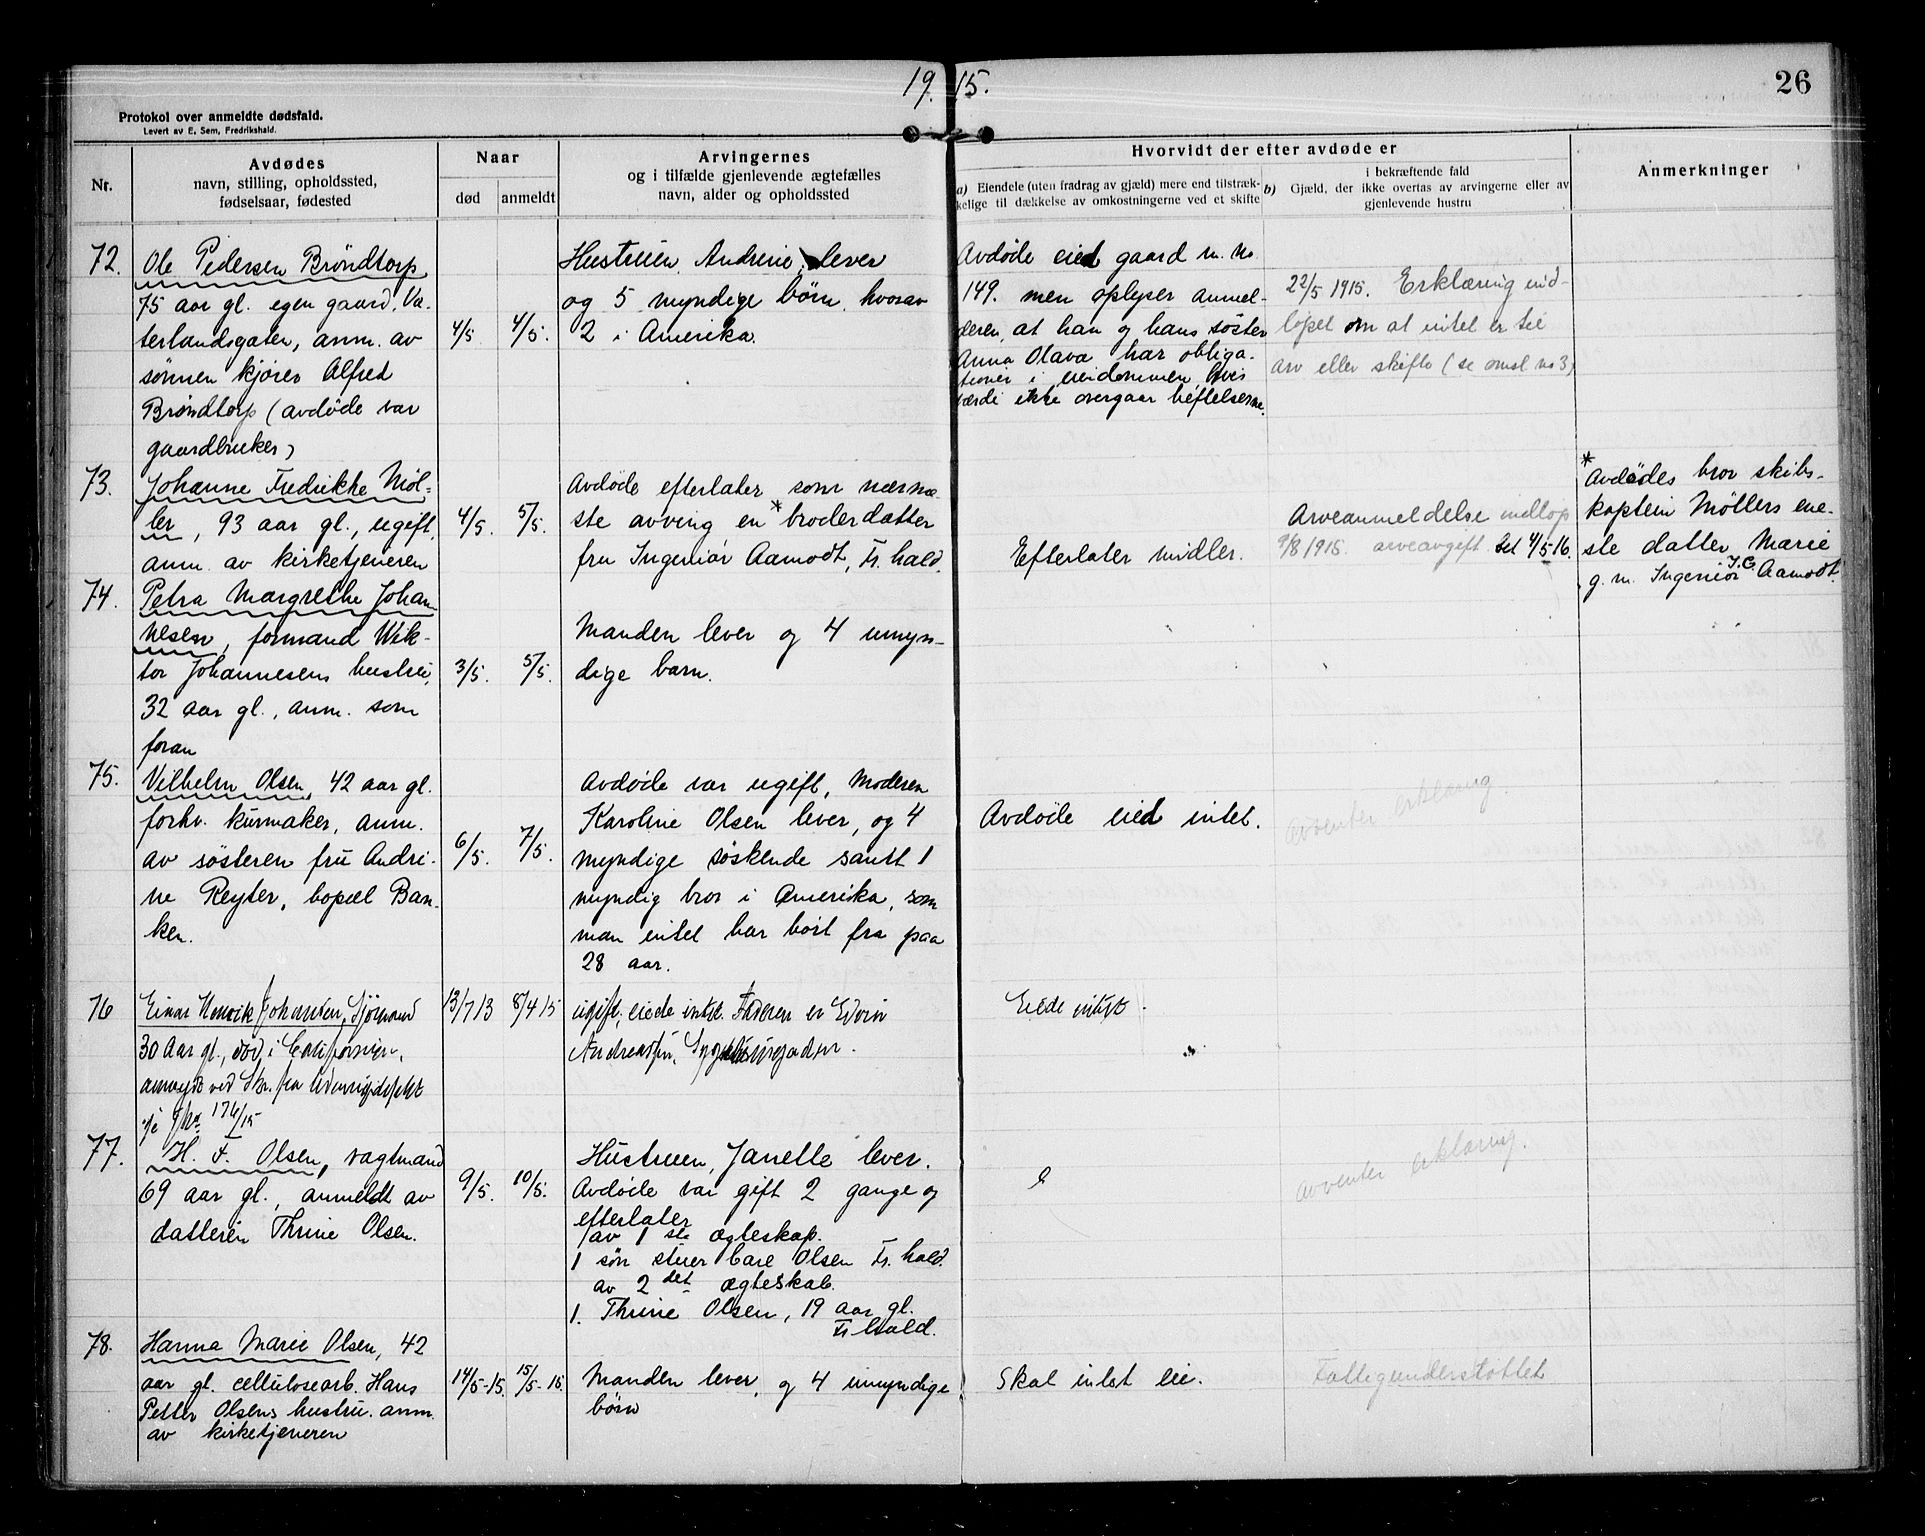 19. 15.
26
Protokol over anmeldte dødsfald.
Levert av E. Sem, Fredrikshald.
Nr.
Avdødes
navn, stilling, opholdssted,
fødselsaar, fødested
Naar
død
anmeldt
Arvingernes
og i tilfælde gjenlevende ægtefælles
navn, alder og opholdssted
Hvorvidt der efter avdøde er
a) Eiendele (uten fradrag av gjæld) mere end tilstræk-
kelige til dækkelse av omkostningerne ved et skifte
i bekræftende fald
b) Gjæld, der ikke overtas av arvingerne eller av
gjenlevende hustru
Anmerkninger
72.
Ole Pedersen Bröndtorp
75 aar gl. egen gaard, Va-
terlandsgaten, anm. av
sønnen kjører Alfred
Bröndtorp (avdøde var
gaardbruker)
4/5
4/5.
Hustruen, Andrine, lever
og 5 myndige børn, hvorav
2 i Amerika.
Avdøde eied gaard m. no
149. men oplyser anmel-
deren, at han og hans søster
Anna Olava har obliga-
tioner i eiendommen, hvis
værdi ikke overgaar heftelserne.
22/5 1915. Erklæring ind-
løpet om at intet er til
arv eller skifte (se omsl no 3)
73.
Johanne Fredrikke Möl-
ler, 93 aar gl., ugift,
anm. av kirketjeneren
4/5.
5/5.
Avdøde efterlater som nærme-
ste arving en * broderdatter
fru Ingeniør Aamodt, Fr.hald.
Efterlater midler.
Arveanmeldelse indløp
9/8 1915. arveavgift bet 4/5 16.
* Avdødes bror skibs-
kaptein Møllers ene-
ste datter Marie
g. m. Ingeniør J.C. Aamodt.
74.
Petra Margrethe Johan-
nesen, formand Wik-
tor Johannesens hustru,
32 aar gl., anm. som
foran
3/5.
5/5.
Manden lever og 4 umyn-
dige barn.
75.
Vilhelm Olsen, 42 aar gl.
forhv. kurvmaker, anm.
av søsteren fru Andri-
ne Reyter, bopæl Ban-
ken.
6/5.
7/5.
Avdøde var ugift, Moderen
Karoline Olsen lever, og 4
myndige søskende samt 1
myndig bror i Amerika, som
man intet har hørt fra paa
28 aar.
Avdøde eied intet.
Avventer erklæring.
76
Einar Henrik Johansen, Sjömand
30 Aar gl., död i Californien,
anmeldt ved Skr. fra
174/15
13/7 13
8/4 15
ugift, eiede intet. Faderen er Edvin
Andreassen,
Eiede intet.
77.
H. F. Olsen, vagtmand
69 aar gl., anmeldt av
datteren Thrine Olsen.
9/5.
10/5.
Hustruen, Janette lever.
Avdøde var gift 2 gange og
efterlater
av 1ste ægteskap.
1 søn stuer Care Olsen Fr.hald.
av 2det ægteskab.
1. Thrine Olsen, 19 aar gl.
Fr.hald.
Avventer erklæring.
78.
Hanna Marie Olsen, 42
aar gl. cellulosearb. Hans
Petter Olsens hustru. anm.
av kirketjeneren
14/5-15.
15/5-15.
Manden lever, og 4 umyndige
børn
Skal intet eie.
Fattigunderstøttet